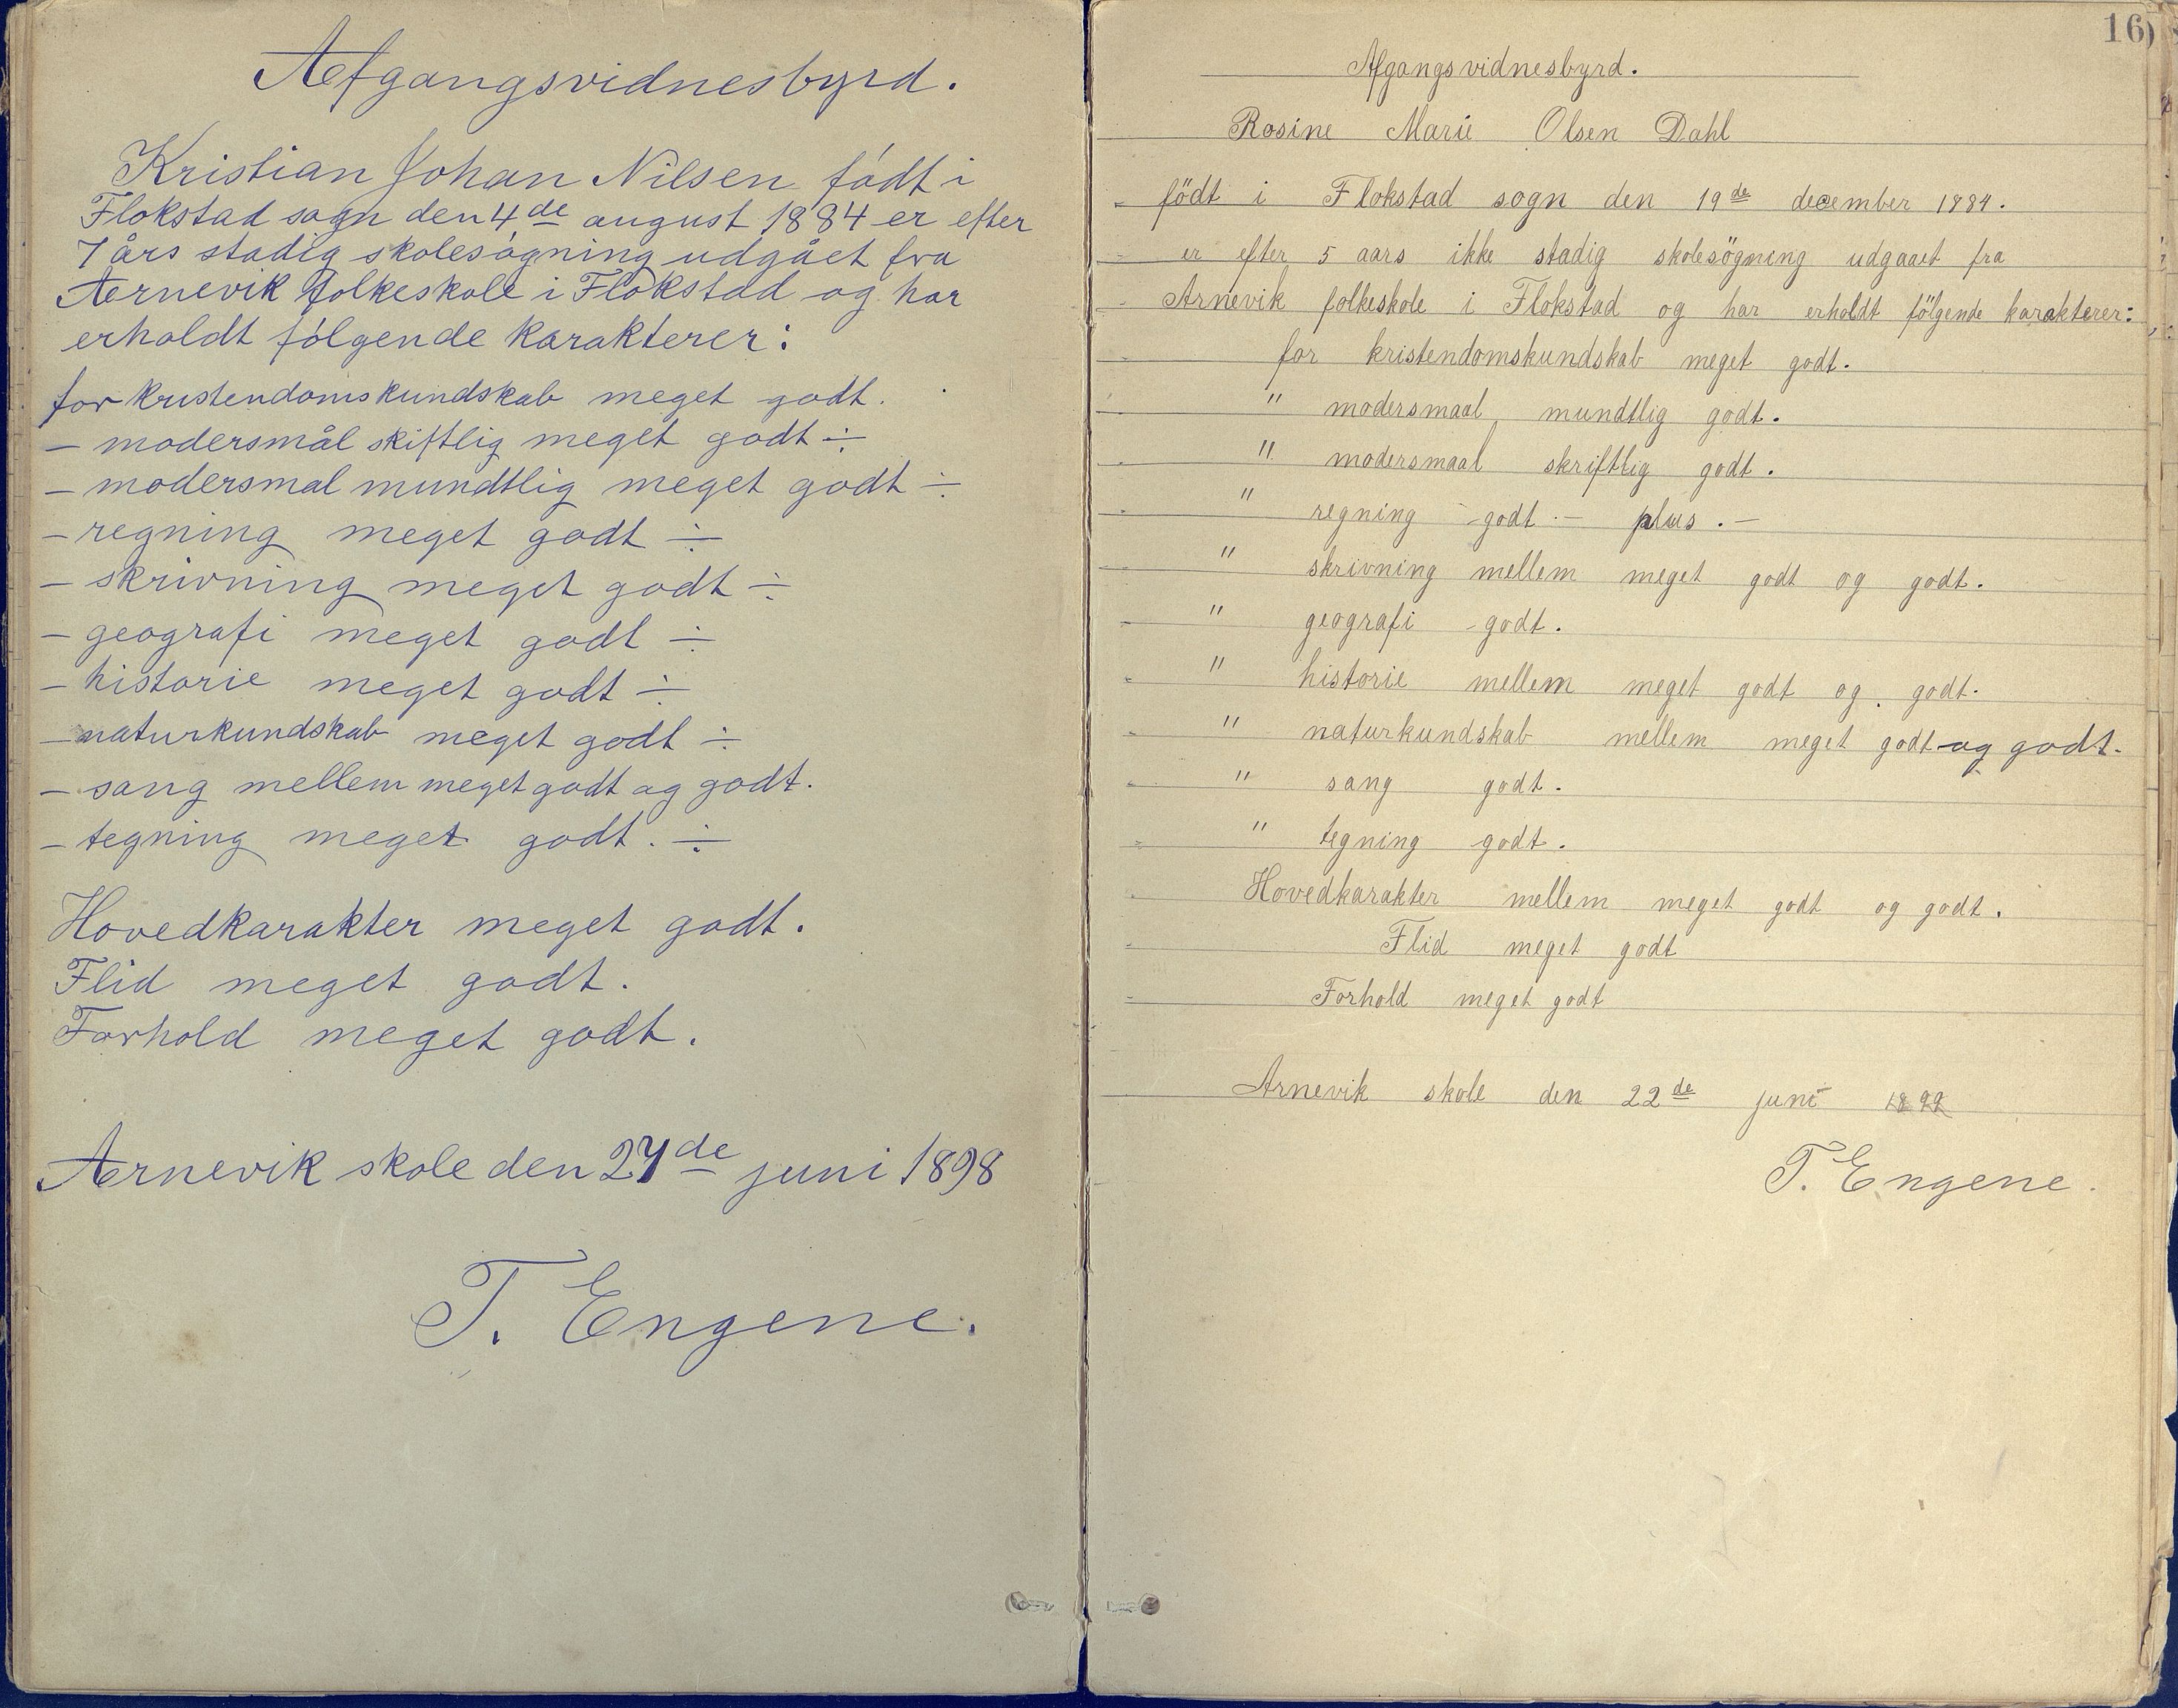 Afgangsvidnesbyrd.
Kristian Johan Nilsen født i
Flokstad sogn den 4de august 1884 er efter
7 års stadig skolesøgning udgået fra
Arnevik folkeskole i Flokstad og har
erholdt følgende karakterer:
for kristendomskundskab meget godt.
– modersmål skiftlig meget godt ÷
– modersmal mundtlig meget godt ÷
– regning meget godt ÷
– skrivning meget godt ÷
– geografi meget godt ÷
– historie meget godt ÷
– naturkundskab meget godt ÷
– sang mellem meget godt og godt.
– tegning meget godt. ÷
Hovedkarakter meget godt.
Flid meget godt.
Forhold meget godt.
Arnevik skole den 27de juni 1898
T. Engene.
16
Afgangsvidnesbyrd.
Rosine Marie Olsen Dahl
födt i Flokstad sogn den 19de december 1884.
er efter 5 aars ikke stadig skolesögning udgaaet fra
Arnevik folkeskole i Flokstad og har erholdt fölgende karakterer:
for kristendomskundskab meget godt.
" modersmaal mundtlig godt.
" modersmaal skriftlig godt.
" regning godt – plus. –
" skrivning mellem meget godt og godt.
" geografi godt.
" historie mellem meget godt og godt.
" naturkundskab mellem meget godt og godt.
" sang godt.
" tegning godt.
Hovedkarakter mellem meget godt og godt.
Flid meget godt
Forhold meget godt
Arnevik skole den 22de juni 1899
T. Engene.